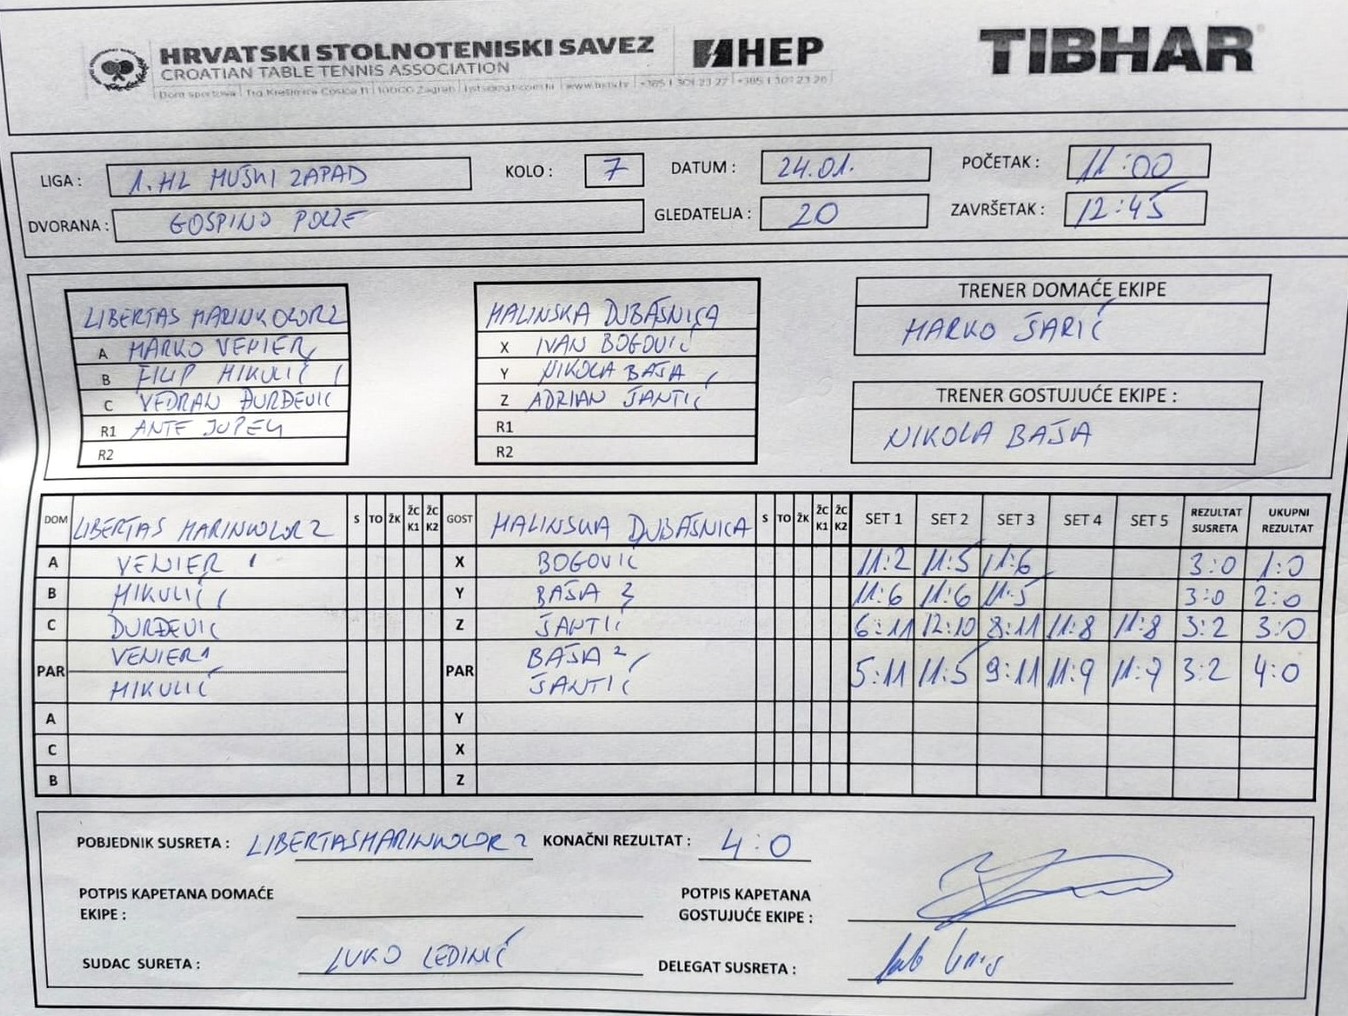 HRVATSKI STOLNOTENISKI SAVEZ
CROATIAN TABLE TENNIS ASSOCIATION
HEP
TIBHAR
LIGA : 1. HL MUŠKI ZAPAD KOLO : 7 DATUM : 24.01. POČETAK : 11:00
DVORANA : GOSPINO POLJE GLEDATELJA : 20 ZAVRŠETAK : 12:45
LIBERTAS MARINKOLOR 2
A MARKO VENIER
B FILIP MIKULIĆ
C VEDRAN ĐURĐEVIĆ
R1 ANTE
R2
MALINSKA DUBAŠNICA
X IVAN BOGOVIĆ
Y NIKOLA BAŠA
Z ADRIAN ŠANTIĆ
R1
R2
TRENER DOMAĆE EKIPE
MARKO ŠARIĆ
TRENER GOSTUJUĆE EKIPE :
NIKOLA BAŠA
DOM LIBERTAS MARINKOLOR 2 S TO ŽK ŽC K1 ŽC K2 GOST MALINSKA DUBAŠNICA S TO ŽK ŽC K1 ŽC K2 SET 1 SET 2 SET 3 SET 4 SET 5 REZULTAT SUSRETA UKUPNI REZULTAT
A VENIER X BOGOVIĆ 11:2 11:5 11:6 3:0 1:0
B MIKULIĆ Y BAŠA 11:6 11:6 11:5 3:0 2:0
C ĐURĐEVIĆ Z ŠANTIĆ 6:11 12:10 8:11 11:8 11:8 3:2 3:0
PAR VENIER MIKULIĆ PAR BAŠA ŠANTIĆ 5:11 11:5 9:11 11:9 11:9 3:2 4:0
A Y
C X
B Z
POBJEDNIK SUSRETA : LIBERTAS MARINKOLOR 2 KONAČNI REZULTAT : 4:0
POTPIS KAPETANA DOMAĆE EKIPE :
POTPIS KAPETANA GOSTUJUĆE EKIPE :
SUDAC SURETA : LUKO LEDINIĆ DELEGAT SUSRETA :